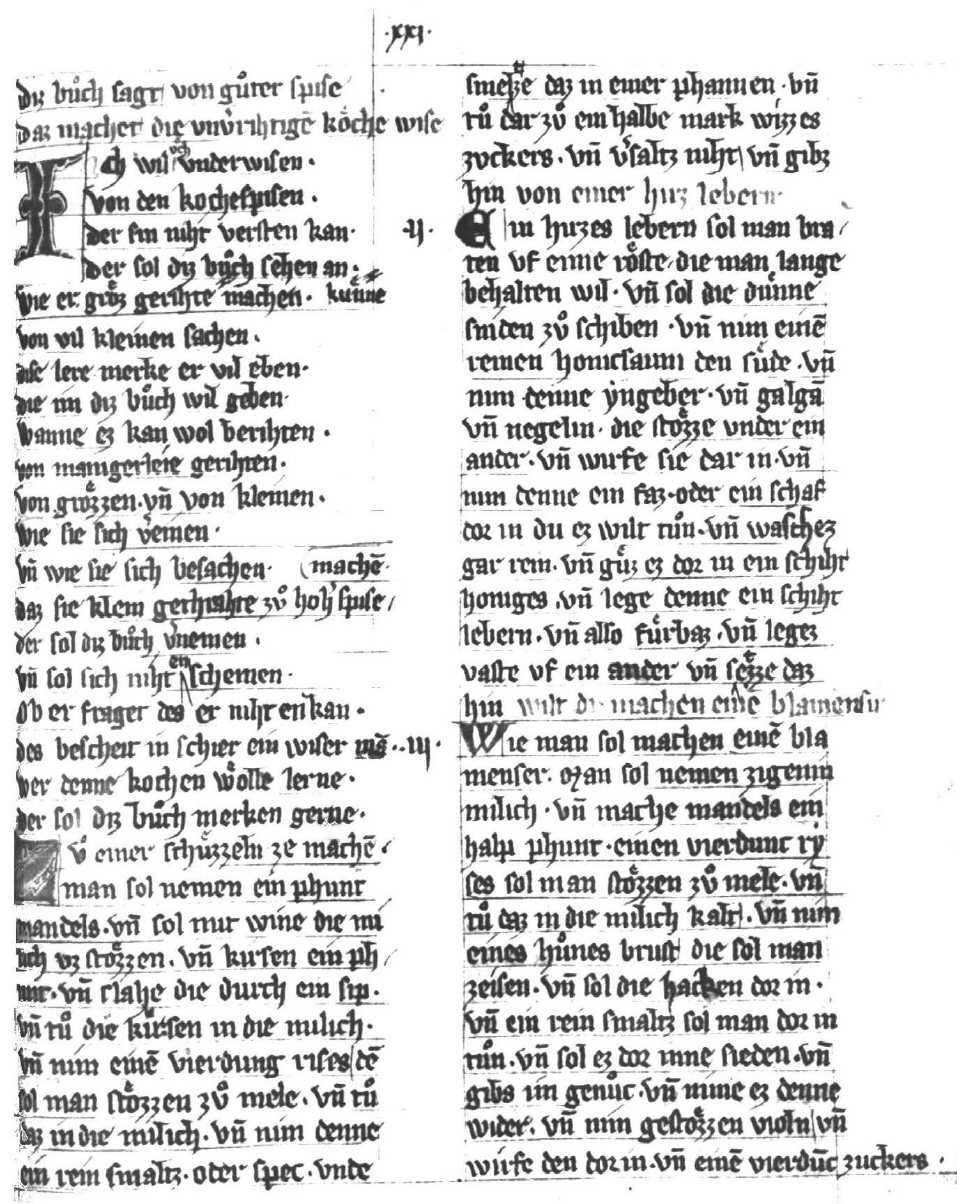 ·xxi·
diz bůch sagt von gůter spise
daz machet die vnv̓rihtigē kȫche wise
Ich wil vch vnderwisen·
von den kochespisen·
der sin niht versten kan·
der sol diz bůch sehen an·
wie er grōz gerihte machen· kūnne
von vil kleinen sachen·
dise lere merke er vil eben·
die im diz bůch wil geben·
wanne ez kan wol berihten·
von manigerleie gerihten·
von grȫzzen·vn̄ von kleinen·
wie sie sich v̓einen·
vn̄ wie sie sich besachen· machē·
daz sie klein gerihte zů hoh̓ spise
der sol diz bůch v̓nemen·
vn̄ sol sich niht en schemen·
Ob er fraget des er niht enkan·
des bescheit in schier ein wiser mā·
wer denne kochen wȫlle lerne·
der sol diz bůch merken gerne·
Zv̊ einer schůzzeln ze machē·
man sol nemen ein phunt
mandels·vn̄ sol mit wine die mi
lich vz stȫzzen·vn̄ kirsen ein ph
unt·vn̄ slahe die durch ein sip·
vn̄ tů die kirsen in die milich·
vn̄ nim einē vierdung rises dē
sol man stȫzzen zů mele·vn̄ tů
daz in die milich·vn̄ nim denne
ein rein smaltz·oder spec·vnde
smeltze daz in einer phannen·vn̄
tů dar zů ein halbe mark wizzes
zvckers·vn̄ v̓saltz niht vn̄ gibz
hin von einer hirz lebern
·ij· Ein hirzes lebern sol man bra
ten vf eime rȫste·die man lange
behalten wil·vn̄ sol die důnne
sniden zů schiben·vn̄ nim einē
reinen honicsaum den sůde·vn̄
nim denne yngeber·vn̄ galgā
vn̄ negelin·die stȫzze vnder ein
ander·vn̄ wirfe sie dar in·vn̄
nim denne ein faz·oder ein schaf
dor in du ez wilt tůn·vn̄ waschez
gar rein·vn̄ gůz ez dor in ein schiht
honiges·vn̄ lege denne ein schiht
lebern·vn̄ also fůrbaz·vn̄ legez
vaste vf ein ander vn̄ setze daz
hin wilt du machen eine blamensir
·iij· Wie man sol machen einē bla
menser·Man sol nemen zigenin
milich·vn̄ mache mandels ein
halp phunt·einen vierdunc ry
ses sol man stȫzzen zů mele·vn̄
tů daz in die milich kalt·vn̄ nim
eines hůnes brust die sol man
zeisen·vn̄ sol die hacken dor in·
vn̄ ein rein smaltz sol man dor in
tůn·vn̄ sol ez dor inne sieden·vn̄
gibs im genůc·vn̄ nime ez denne
wider·vn̄ nim gestȫzzen violn vn̄
wirfe den dor in·vn̄ einē vierdūc zuckers·